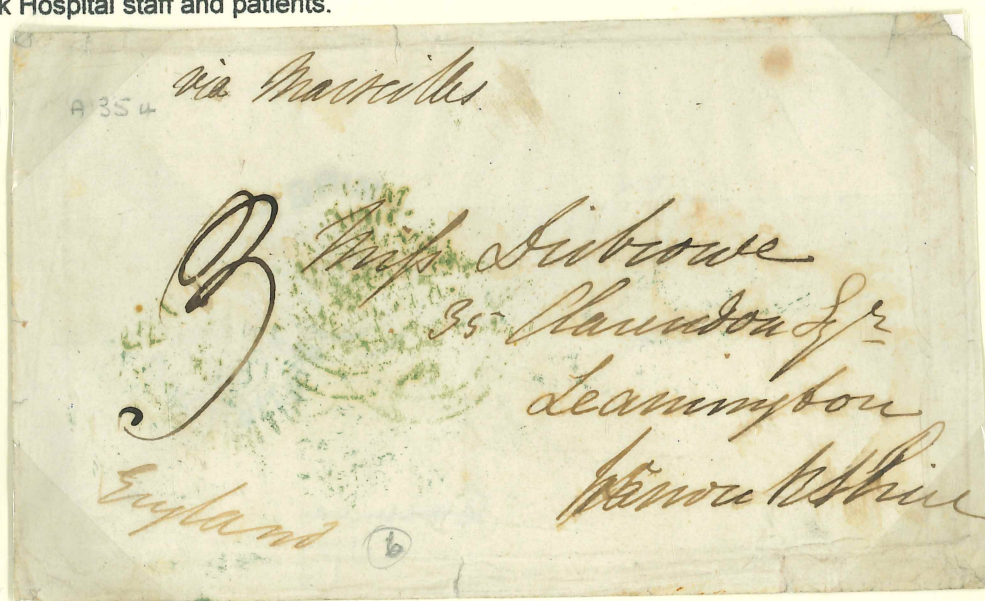 k Hospital staff and patients.
via Marseilles
A 354
3
Miss Dubrowe
35 Clarendon Sqr
Leamington
Warwickshire
England
6